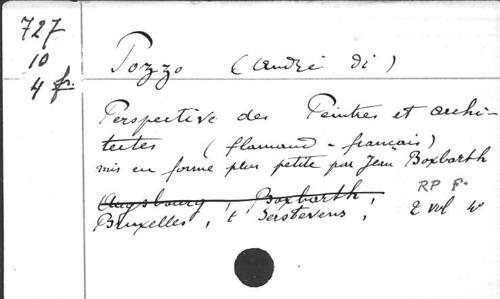 727
10
4 fr.
Pozzo (André di)
Perspective des Peintres et archi-
tectes (flamand - français)
mis en forme plus petite par Jean Boxbarth
Augsbourg, Boxbarth,
RP F.
Bruxelles, t'Serstevens, 2 vol